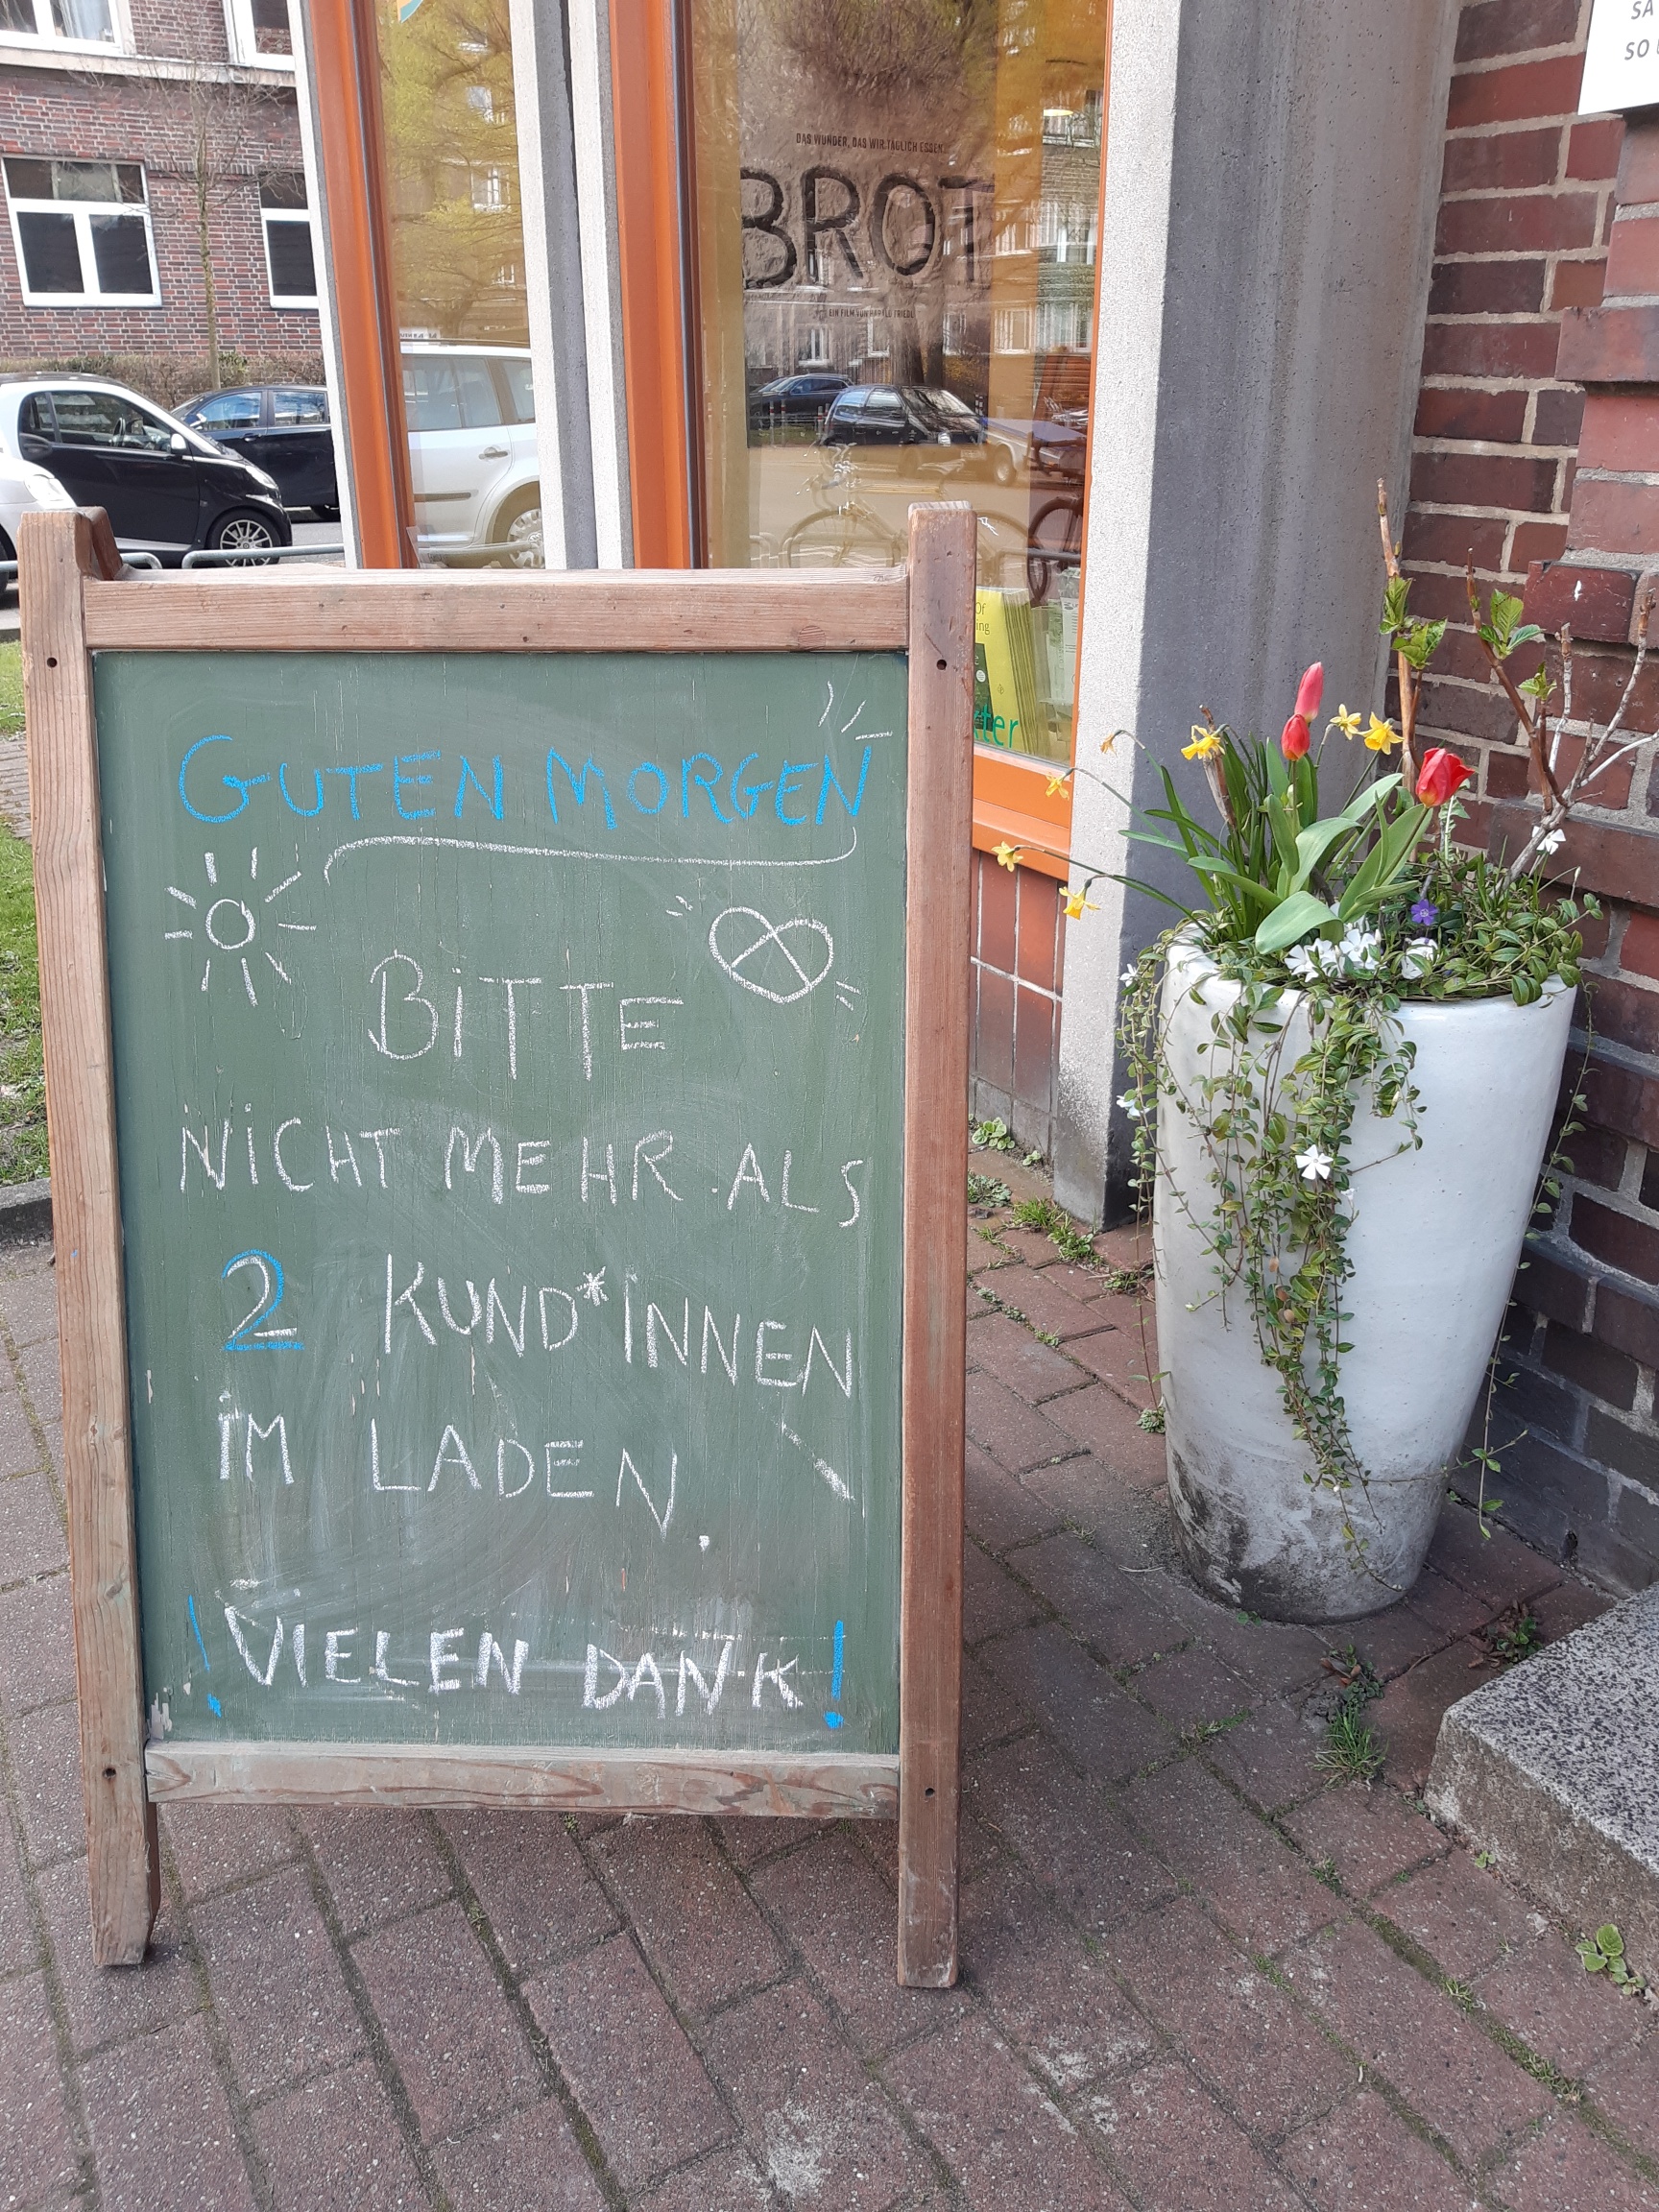 SA
SO
DAS WUNDER, DAS WIR TÄGLICH ESSEN.
BROT
EIN FILM VON HARALD FRIEDL
Of
ing
ter
GUTEN MORGEN
BiTTE
NiCHT MEHR ALS
2 KUND*INNEN
iM LADEN.
! ViELEN DANK !